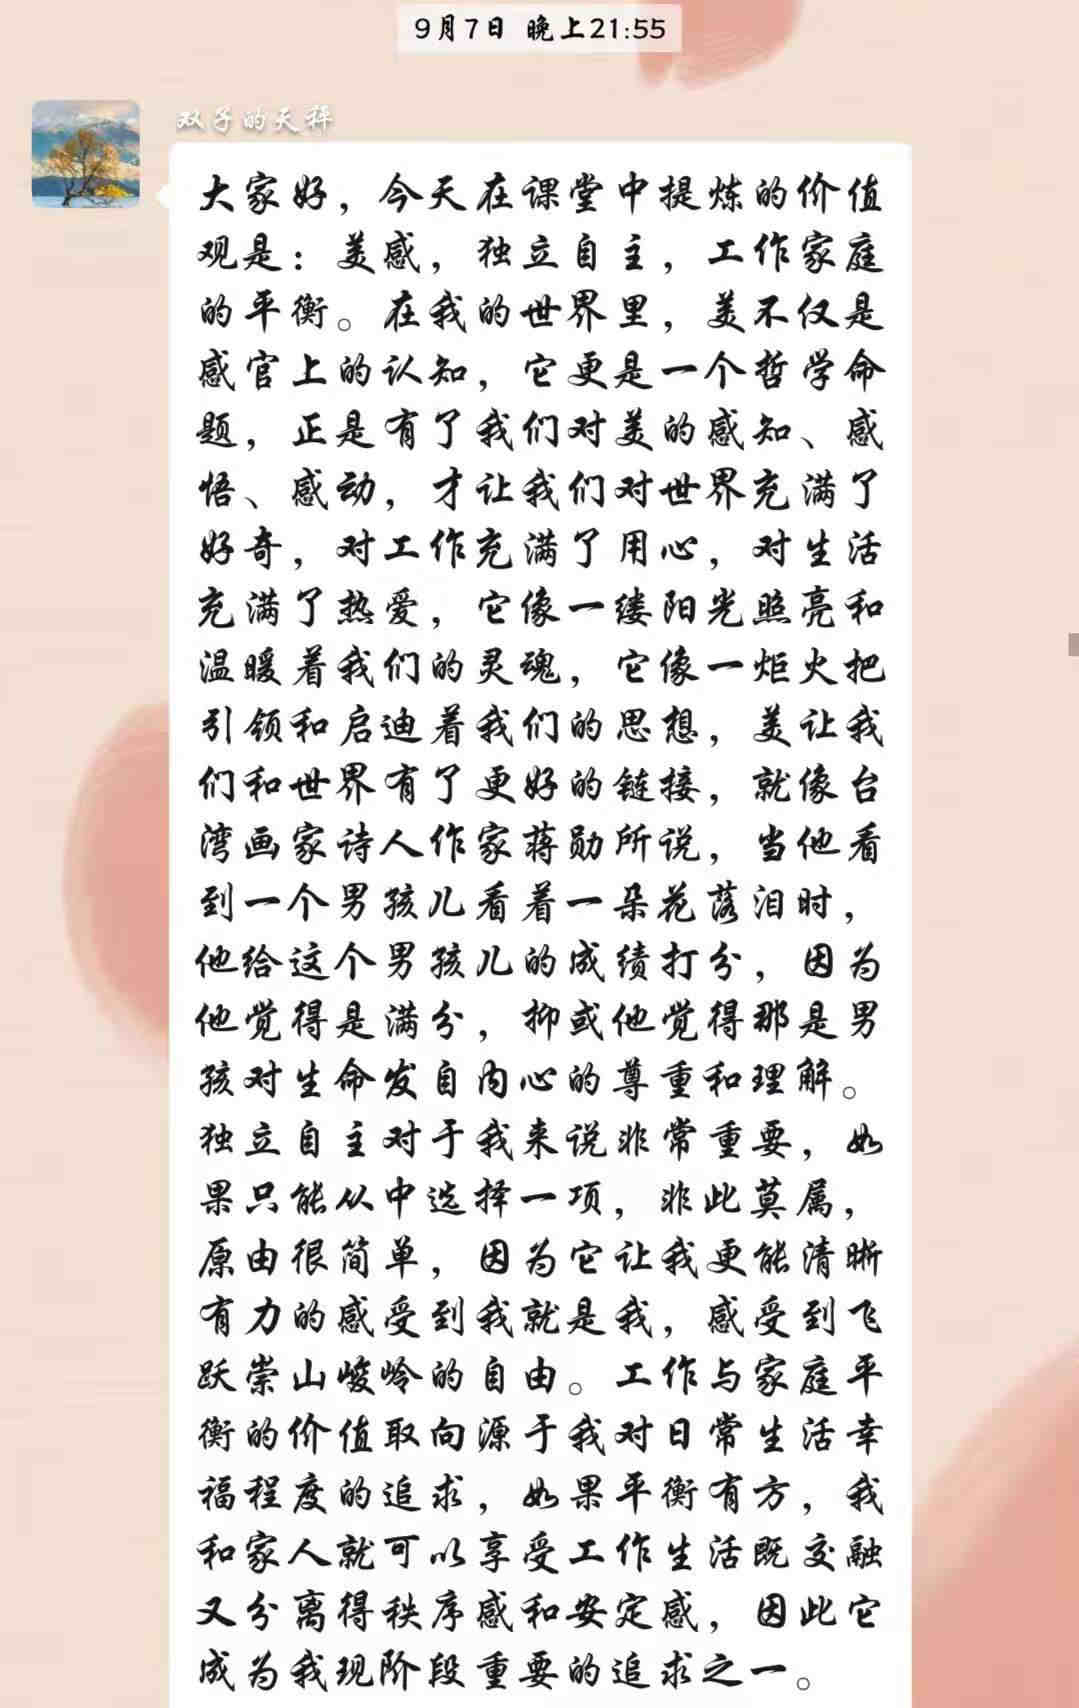 9月7日 晚上21:55
双子的天秤
大家好，今天在课堂中提炼的价值
观是：美感，独立自主，工作家庭
的平衡。在我的世界里，美不仅是
感官上的认知，它更是一个哲学命
题，正是有了我们对美的感知、感
悟、感动，才让我们对世界充满了
好奇，对工作充满了用心，对生活
充满了热爱，它像一缕阳光照亮和
温暖着我们的灵魂，它像一炬火把
引领和启迪着我们的思想，美让我
们和世界有了更好的链接，就像台
湾画家诗人作家蒋勋所说，当他看
到一个男孩儿看着一朵花落泪时，
他给这个男孩儿的成绩打分，因为
他觉得是满分，抑或他觉得那是男
孩对生命发自内心的尊重和理解。
独立自主对于我来说非常重要，如
果只能从中选择一项，非此莫属，
原由很简单，因为它让我更能清晰
有力的感受到我就是我，感受到飞
跃崇山峻岭的自由。工作与家庭平
衡的价值取向源于我对日常生活幸
福程度的追求，如果平衡有方，我
和家人就可以享受工作生活既交融
又分离得秩序感和安定感，因此它
成为我现阶段重要的追求之一。